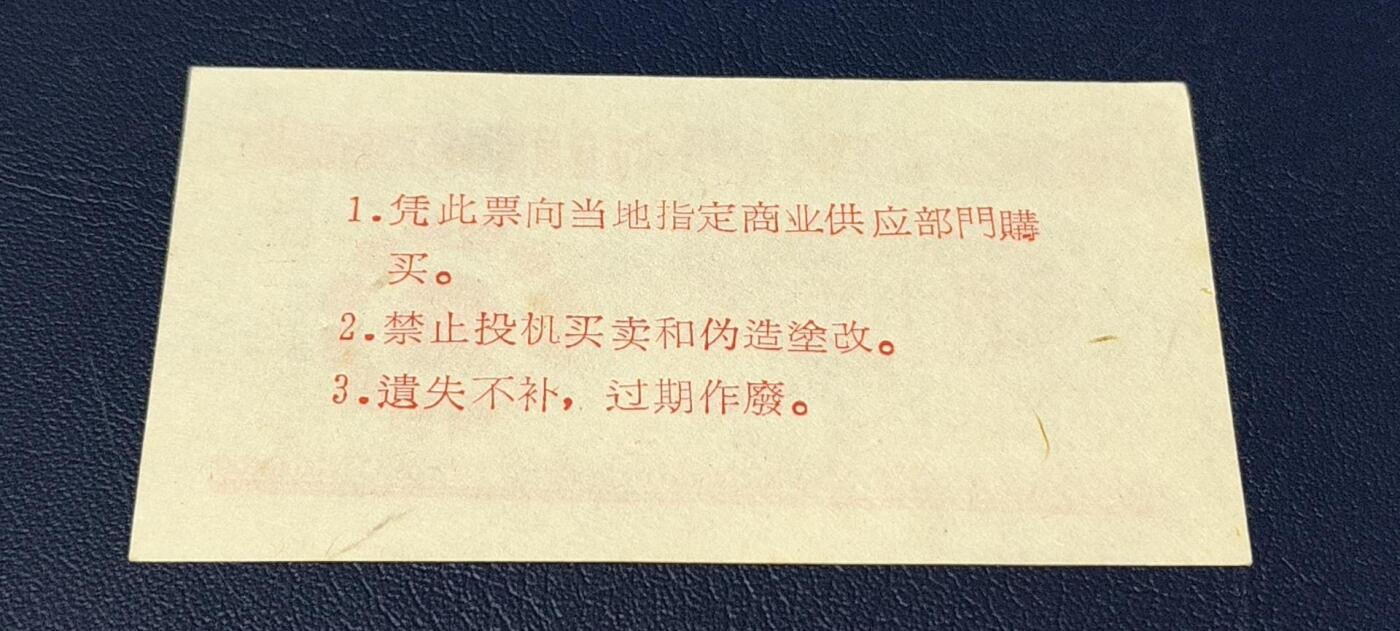 1.凭此票向当地指定商业供应部門購
买。
2.禁止投机买卖和伪造塗改。
3.遺失不补，过期作廢。